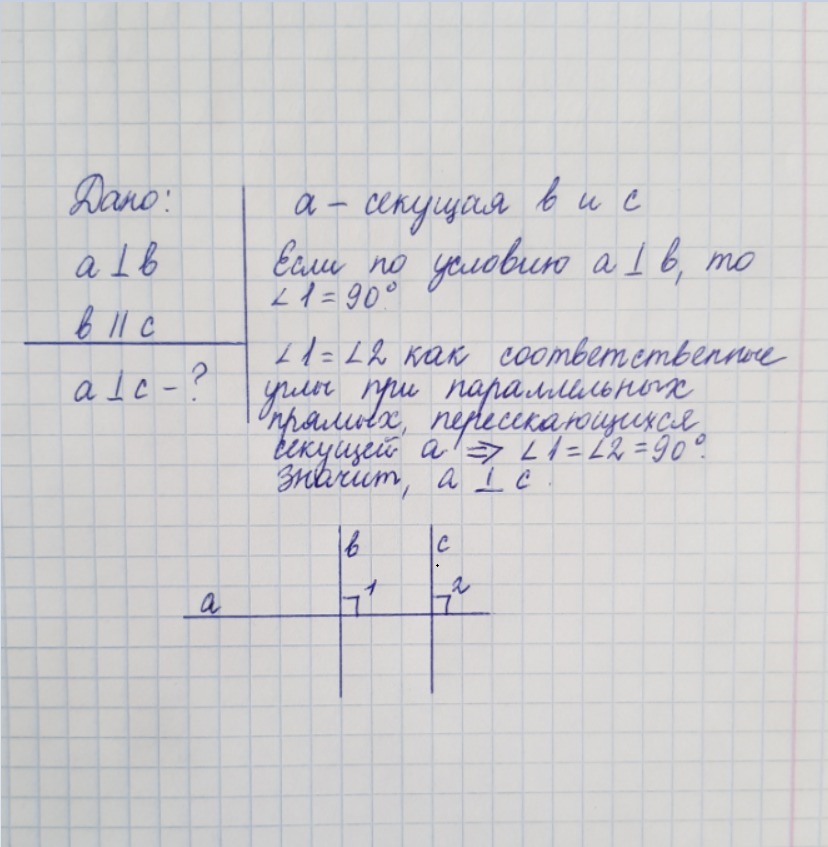 Дано:
a ⊥ b
b || c
a ⊥ c - ?
a – секущая b и c
Если по условию a ⊥ b, то
∠1 = 90°
∠1 = ∠2 как соответственные
углы при параллельных
прямых, пересекающихся
секущей a ⇒ ∠1 = ∠2 = 90°.
Значит, a ⊥ c.
b c
1 2
a